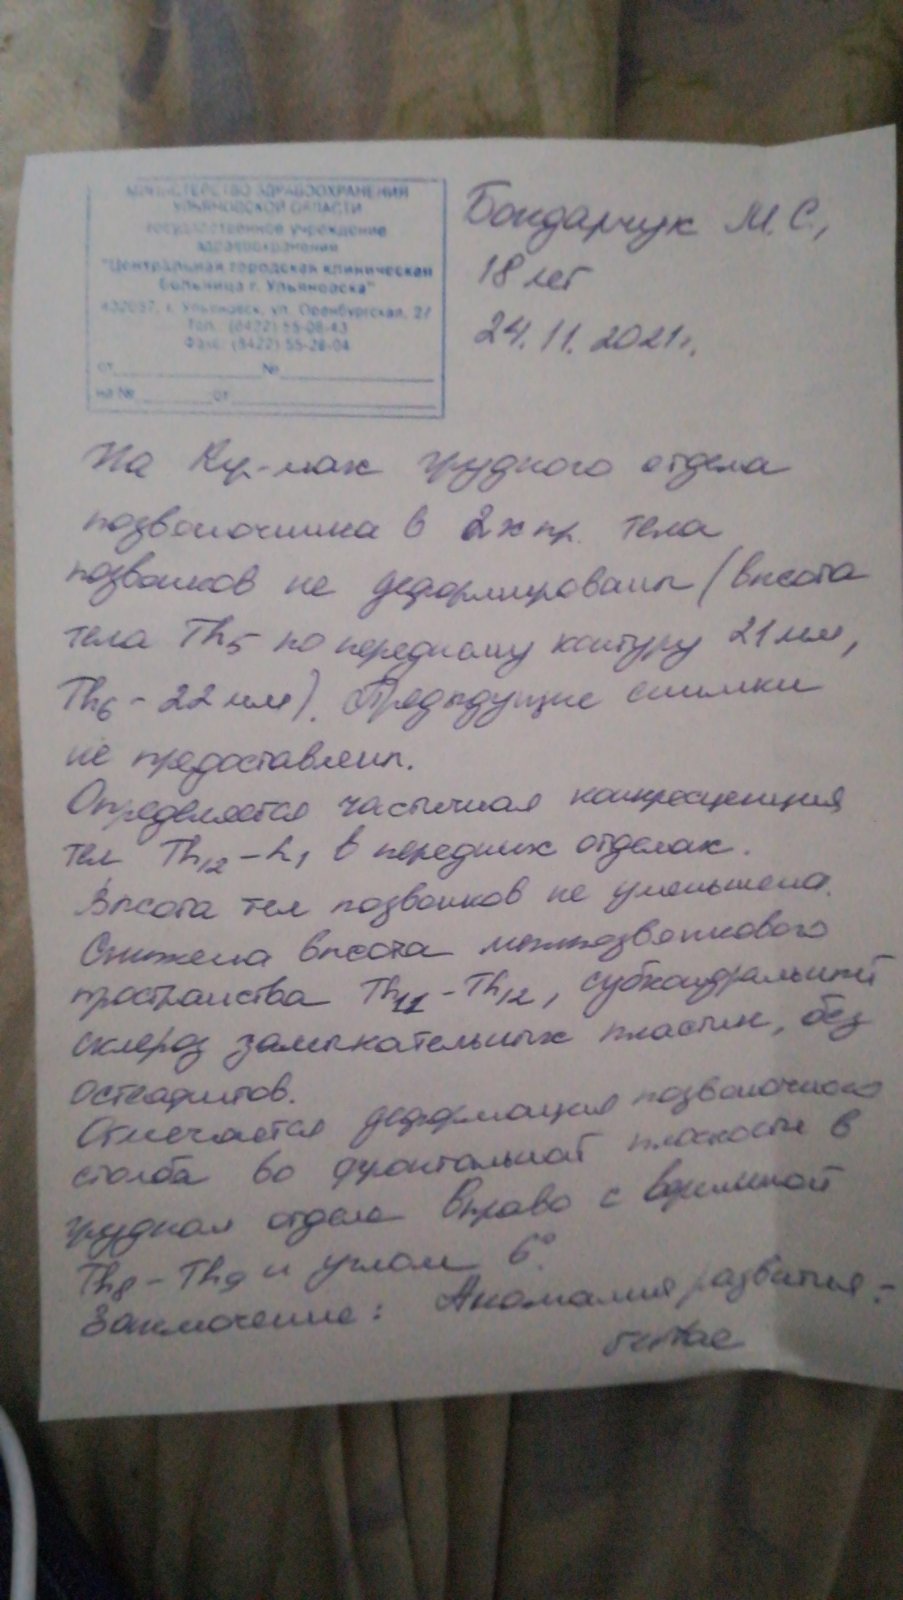 МИНИСТЕРСТВО ЗДРАВООХРАНЕНИЯ
УЛЬЯНОВСКОЙ ОБЛАСТИ
государственное учреждение
здравоохранения
"Центральная городская клиническая
больница г. Ульяновска"
432057, г. Ульяновск, ул. Оренбургская, 27
Тел. (8422) 55-08-43
Факс (8422) 55-26-04
от № 
на № от
Бондарчук М.С.,
18 лет
24.11.2021г.
На Rg-мах грудного отдела
позвоночника в 2х пр. тела
позвонков не деформированы (высота
тела Th5 по переднему контуру 21мм,
Th6 - 22мм). Предыдущие снимки
не предоставлены.
Определяется частичная конкресценция
тел Th12 - L1 в передних отделах.
Высота тел позвонков не уменьшена.
Снижена высота межпозвонкового
пространства Th11 - Th12, субхондральный
склероз замыкательных пластин, без
остеофитов.
Отмечается деформация позвоночного
столба во фронтальной плоскости в
грудном отделе вправо с вершиной
Th8 - Th9 и углом 6°.
Заключение: Аномалия развития -